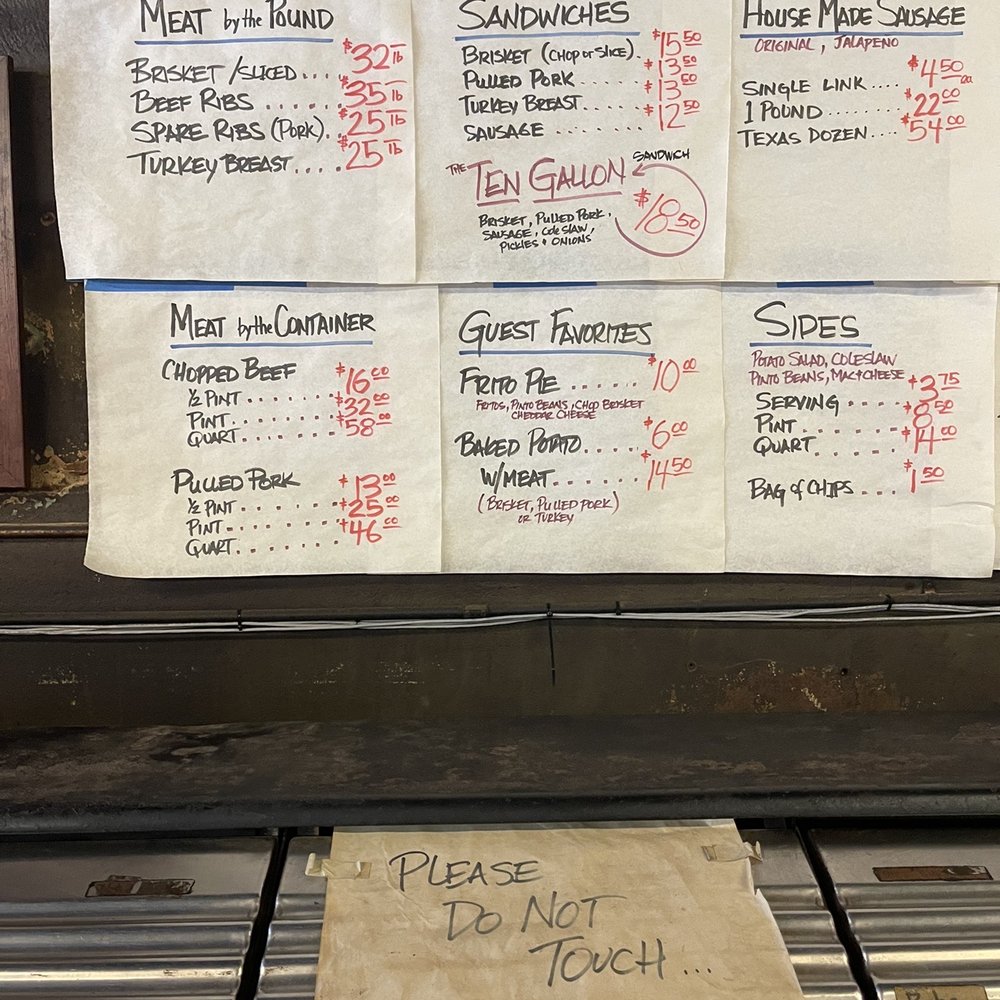 MEAT by the POUND
BRISKET/SLICED.... $32 lb
BEEF RIBS ...... $35 lb
SPARE RIBS (PORK).. $25 lb
TURKEY BREAST.... $25 lb
SANDWICHES
BRISKET (CHOP or SLICE). $15.50
PULLED PORK ..... $13.50
TURKEY BREAST...... $13.50
SAUSAGE ........ $12.50
THE TEN GALLON SANDWICH
$18.50
BRISKET, PULLED PORK,
SAUSAGE, COLESLAW,
PICKLES & ONIONS
HOUSE MADE SAUSAGE
ORIGINAL, JALAPENO
SINGLE LINK.... $4.50 ea
1 POUND ...... $22.00
TEXAS DOZEN.... $54.00
MEAT by the CONTAINER
CHOPPED BEEF
½ PINT........ $16.00
PINT......... $32.00
QUART........ $58.00
PULLED PORK
½ PINT........ $13.00
PINT......... $25.00
QUART........ $46.00
GUEST FAVORITES
FRITO PIE ...... $10.00
FRITOS, PINTO BEANS, CHOP BRISKET
CHEDDAR CHEESE
BAKED POTATO..... $6.00
W/MEAT........ $14.50
(BRISKET, PULLED PORK)
OR TURKEY
SIDES
POTATO SALAD, COLESLAW
PINTO BEANS, MAC & CHEESE
SERVING..... $3.75
PINT....... $8.50
QUART...... $14.00
BAG of CHIPS.... $1.50
PLEASE
DO NOT
TOUCH...